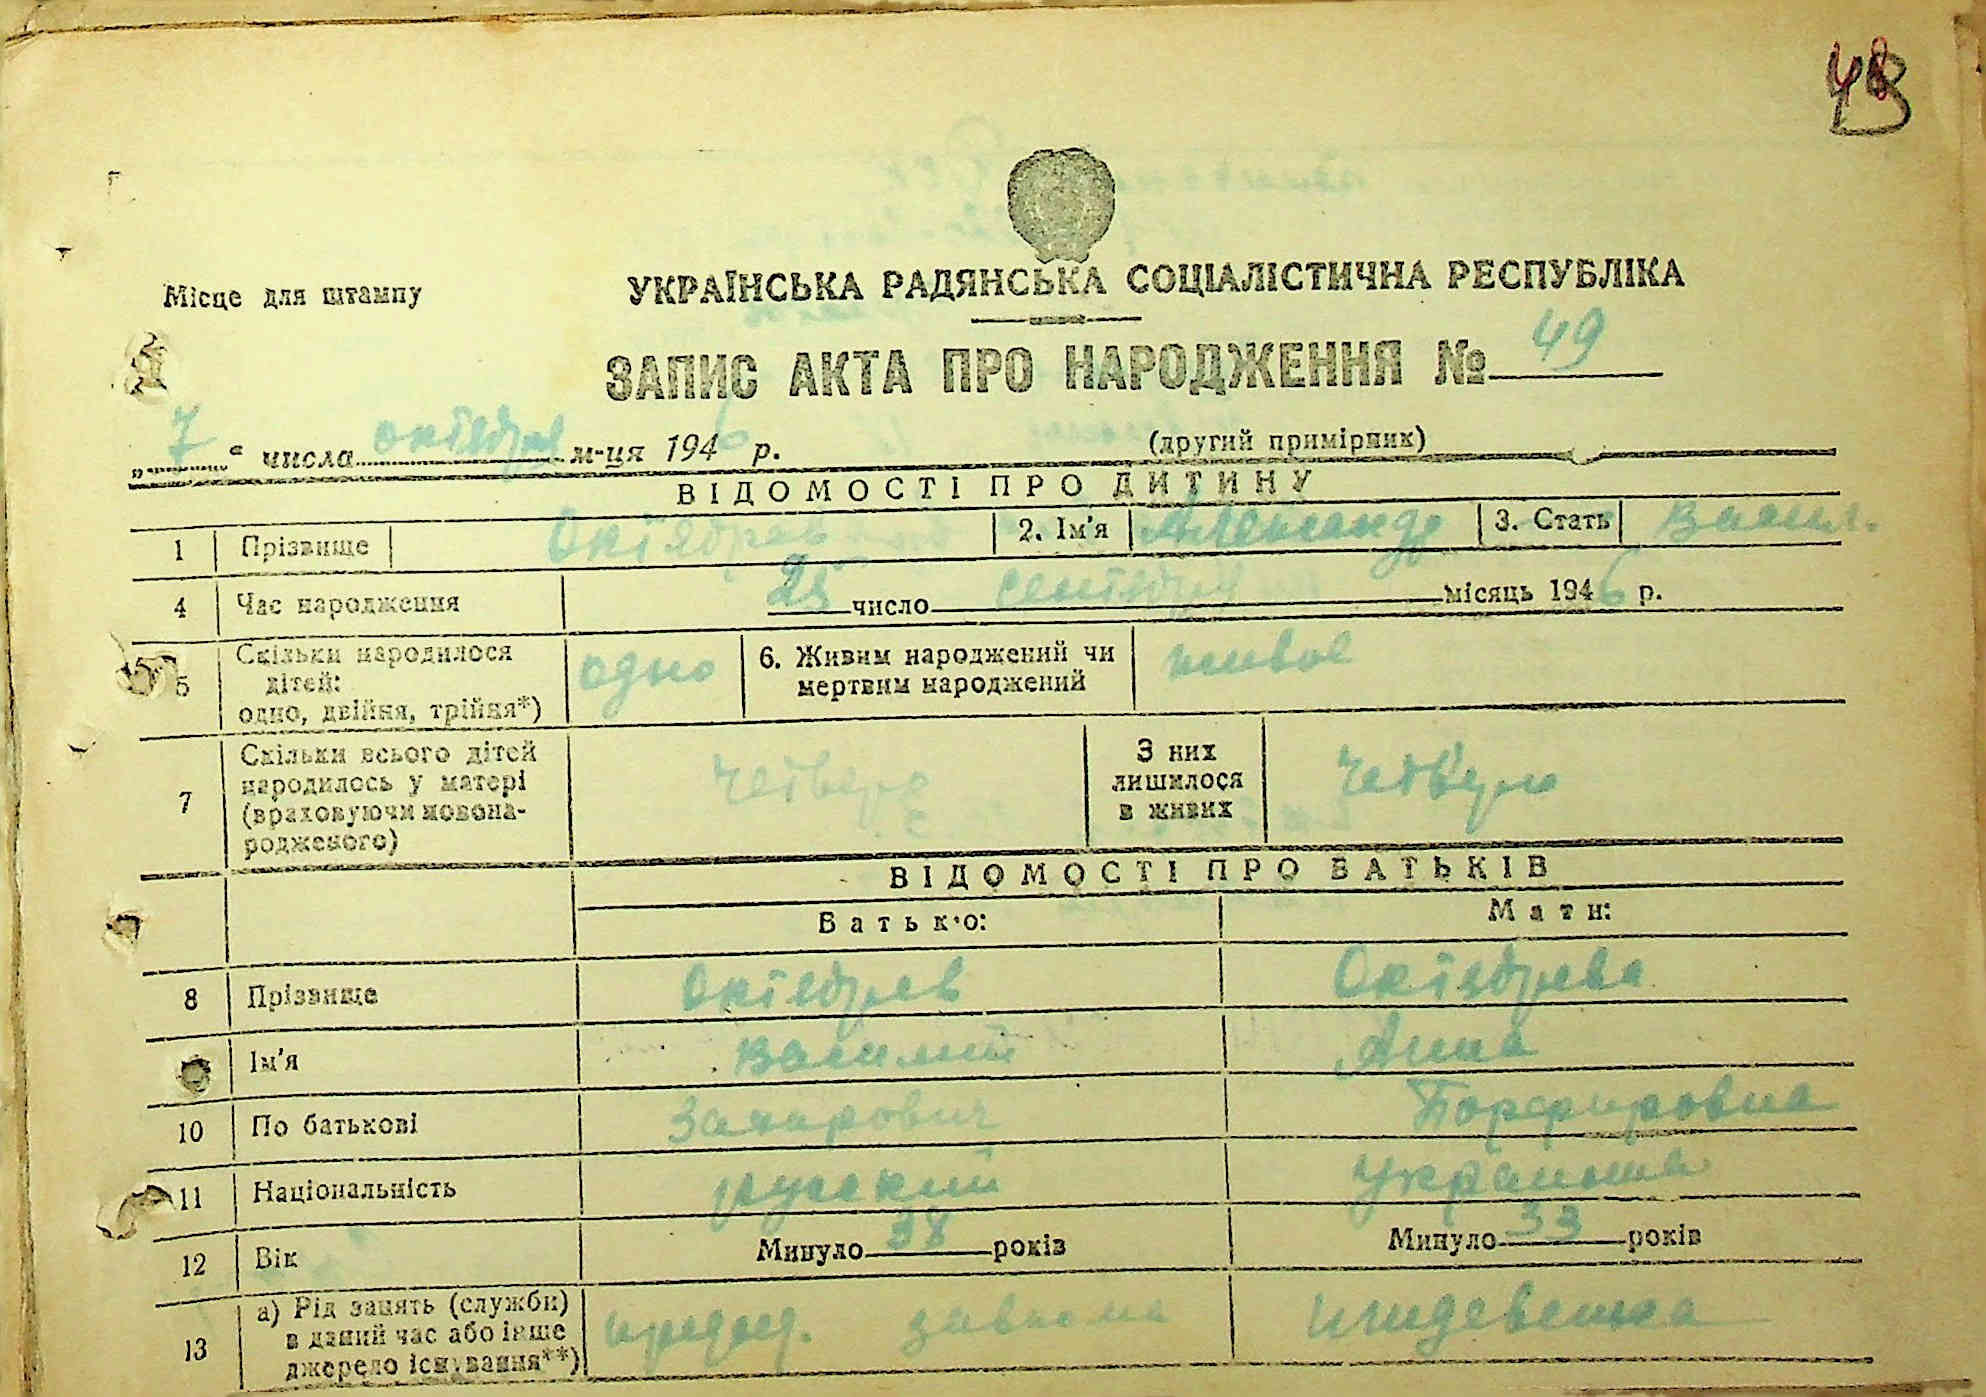 48
Місце для штампу
УКРАЇНСЬКА РАДЯНСЬКА СОЦІАЛІСТИЧНА РЕСПУБЛІКА
ЗАПИС АКТА ПРО НАРОДЖЕННЯ № 49
„7“ числа октября м-ця 1946 р. (другий примірник)
ВІДОМОСТІ ПРО ДИТИНУ
1 Прізвище Октябрев 2. Ім'я Александр 3. Стать
4 Час народження 25 число сентября місяць 1946 р.
5 Скільки народилося дітей: одно, двійня, трійня*) одно 6. Живим народжений чи мертвим народжений живое
7 Скільки всього дітей народилось у матері (враховуючи новонародженого) четверо З них лишилося в живих четверо
ВІДОМОСТІ ПРО БАТЬКІВ
Батько: Мати:
8 Прізвище Октябрев Октябрева
Ім'я Василий Анна
10 По батькові Захарович Порфировна
11 Національність русский Украинка
12 Вік Минуло 38 років Минуло 33 років
13 а) Рід занять (служби) в даний час або інше джерело існування**) предс. завкома иждевенка